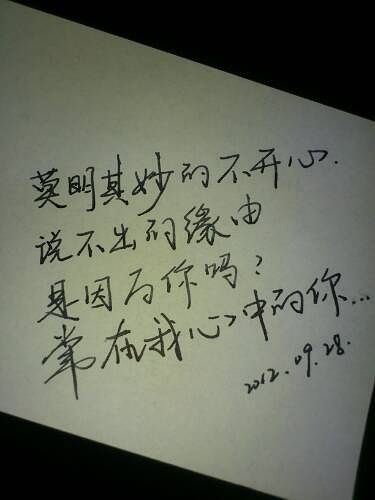 莫明其妙的不开心.
说不出的缘由
是因为你吗?
常在我心中的你...
2012.09.28.